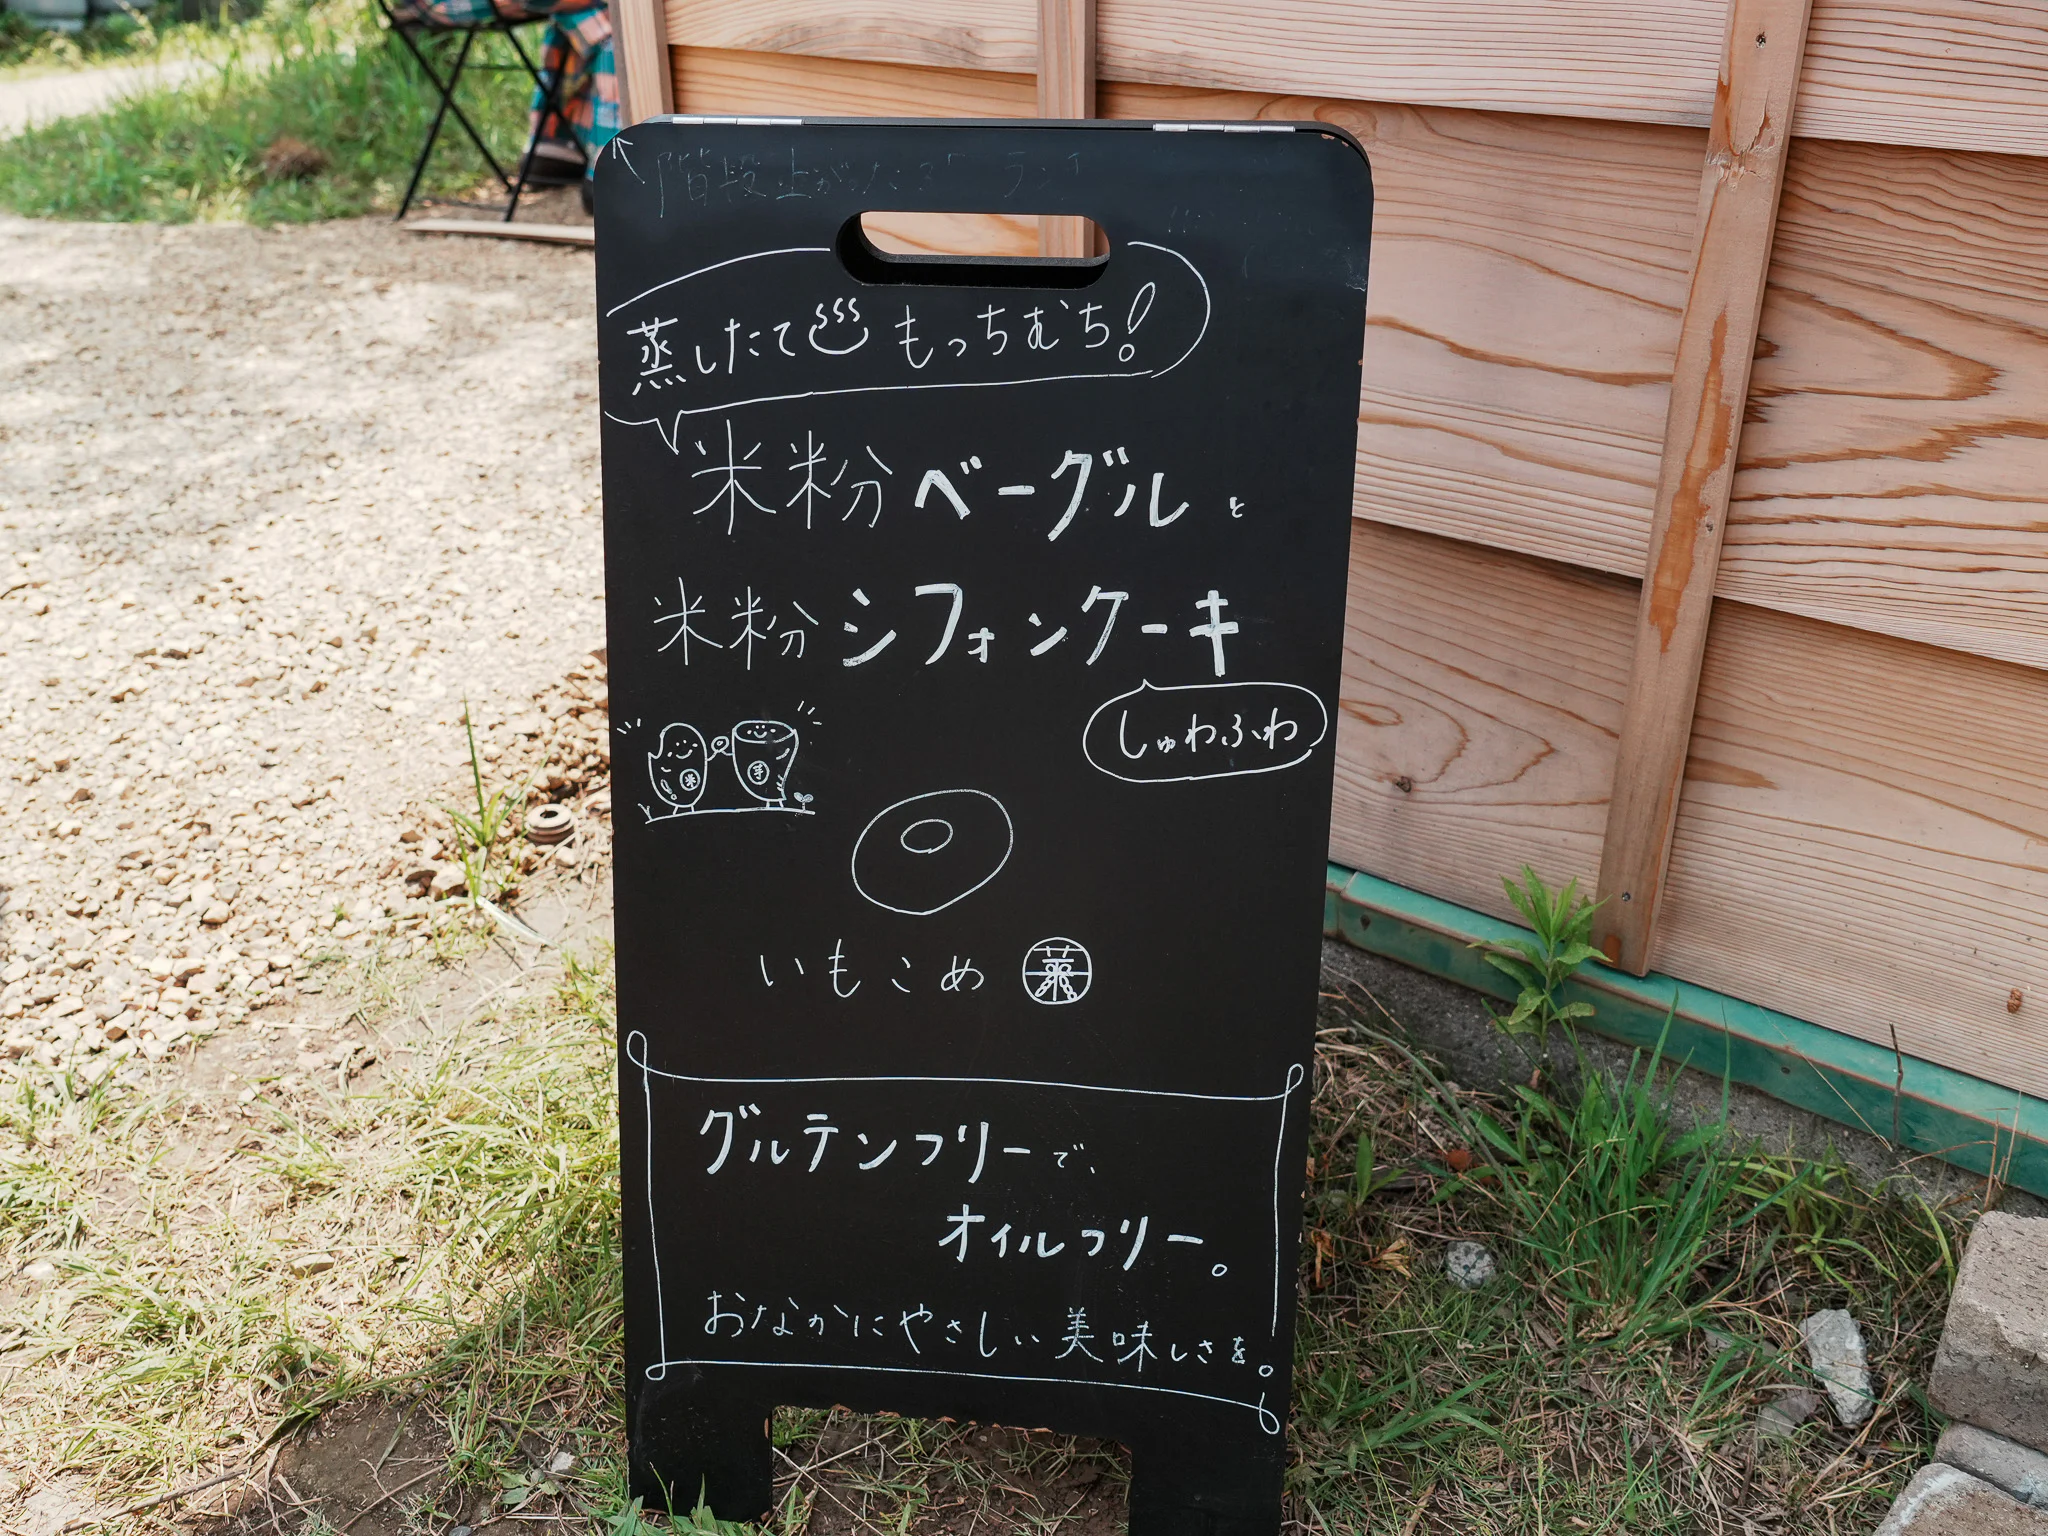 階段上がった
蒸したて もっちむち!
米粉ベーグルと
米粉シフォンケーキ
しゅわふわ
米 芋
いもこめ 蒸
グルテンフリーで、
オイルフリー。
おなかにやさしい美味しさを。